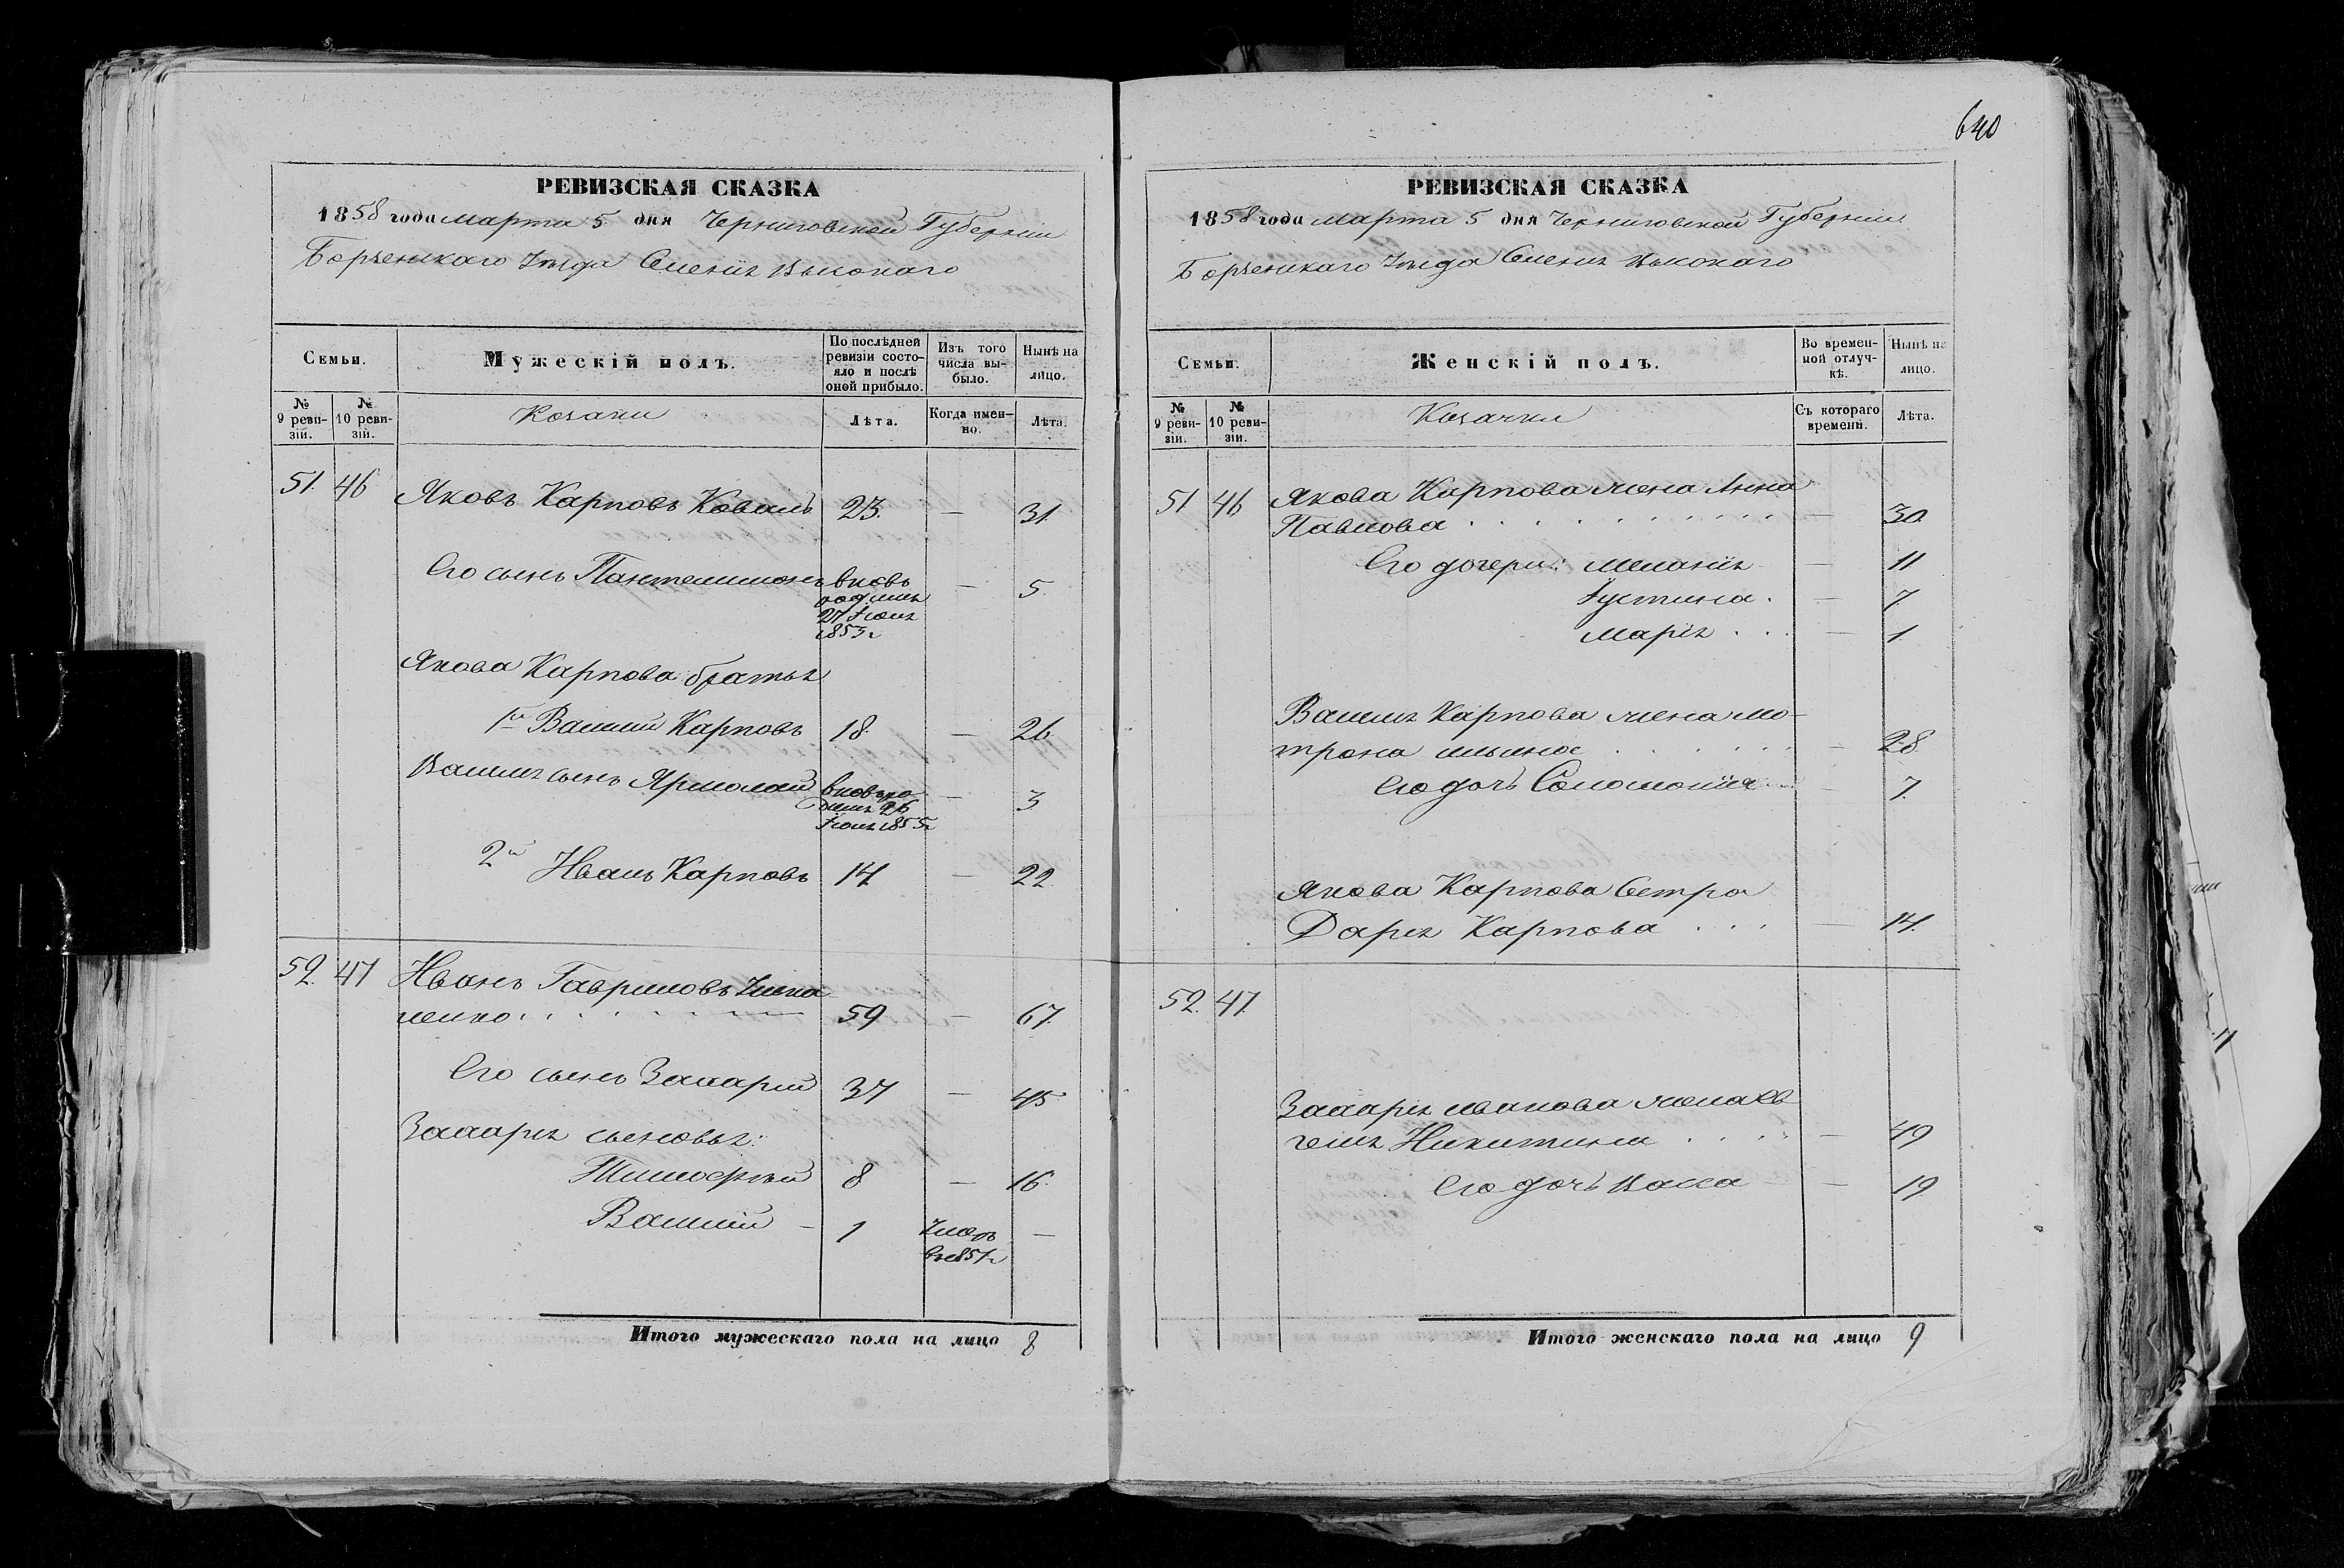 640
РЕВИЗСКАЯ СКАЗКА
1858 года марта 5 дня Черниговской Губернии
Борзенскаго Уезда Селенія Высокаго
Семьи.
Мужескій полъ.
По послѣдней ревизіи состояло и послѣ оной прибыло.
Изъ того числа выбыло.
Нынѣ на лицо.
№ 9 ревизіи.
№ 10 ревизіи.
Козаки
Лѣта.
Когда именно.
Лѣта.
51. 46 Яковъ Карповъ Коваль 23. — 31.
Его сынъ Пантелимонъ вновь — 5.
родился
27 Іюля
1853 г
Якова Карпова братья
1й Василій Карповъ 18. — 26.
Василія сынъ Ярмолай вновь ро — 3.
дился 26
Іюля 1855 г
2й Иванъ Карповъ 14 — 22.
52. 47 Иванъ Гавриловъ
ченко 59 — 67.
Его сынъ Захарій 37 — 45
Захарія сыновья:
Тимофей 8 — 16.
Василій — 1 Умеръ —
въ 1851 г
Итого мужескаго пола на лицо 8
РЕВИЗСКАЯ СКАЗКА
1858 года марта 5 дня Черниговской Губерніи
Борзенскаго Уезда Селенія Высокаго
Семьи.
Женскій полъ.
Во временной отлучкѣ.
Нынѣ на лицо.
№ 9 ревизіи.
№ 10 ревизіи.
Козачки
Съ котораго времени.
Лѣта.
51 46 Якова Карпова жена Анна
Павлова — 30
Его дочери: Меланія — 11
Іустина — 7.
Марія — 1.
Василія Карпова жена Мо-
трона Ильина — 28.
Его дочь Соломонія — 7.
Якова Карпова Сестра
Дарія Карпова — 14.
52. 47.
Захарія Иванова жена Ев
генія Никитина — 49
Его дочь Васса — 19
Итого женскаго пола на лицо 9